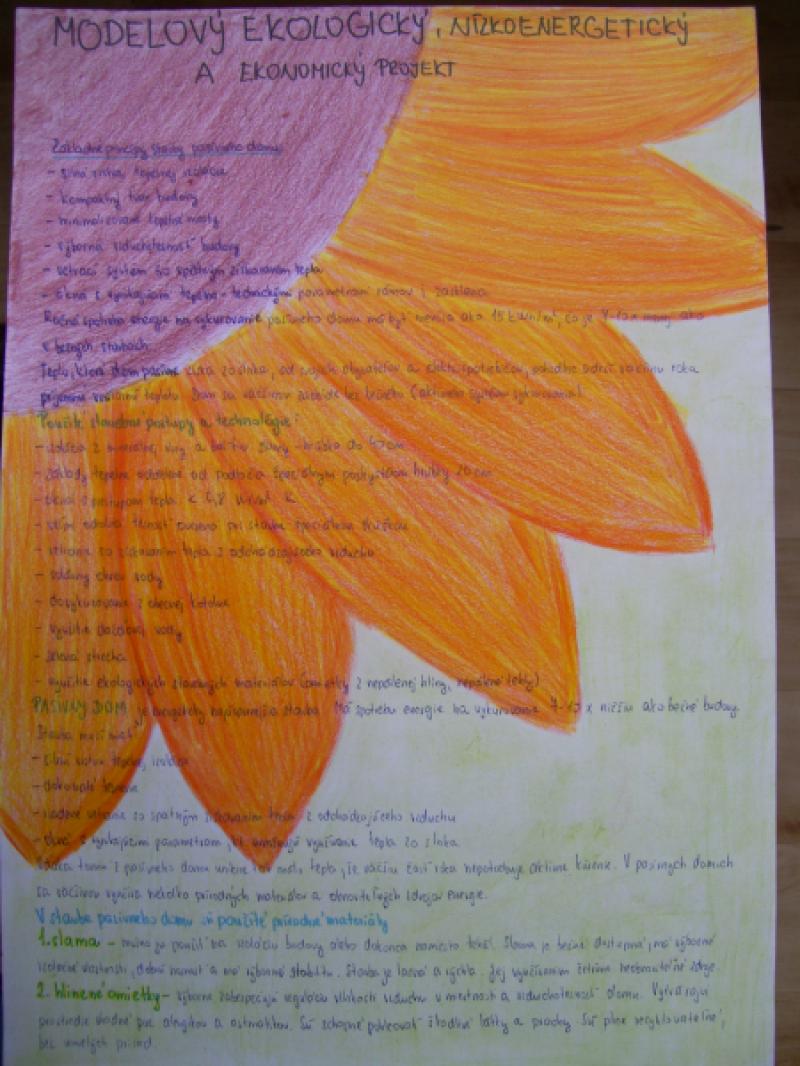 MODELOVÝ EKOLOGICKÝ, NÍZKOENERGETICKÝ
A EKONOMICKÝ PROJEKT
Základné princípy stavby pasívneho domu:
- silná vrstva tepelnej izolácie
- kompaktný tvar budovy
- minimalizované tepelné mosty
- výborná vzduchotesnosť budovy
- vetrací systém so spätným získavaním tepla
- okná s vynikajúcimi tepelno-technickými parametrami rámov i zasklenia
Ročná spotreba energie na vykurovanie pasívneho domu má byť menšia ako 15 kWh/m², čo je 7-10 x menej ako
v bežných stavbách.
Teplo, ktoré dom pasívne získa zo slnka, od svojich obyvateľov a elektrospotrebičov, pohodlne udrží väčšinu roka
príjemnú vnútornú teplotu. Dom sa väčšinou zaobíde bez aktívneho systému vykurovania.
Použité stavebné postupy a technológie:
- izolácia z minerálnej vlny a hrúbka do 40 cm
- základy tepelne oddelené od podložia špeciálnym polystyrénom hrúbky 20 cm
- okná s prestupom tepla < 0,8 W/m² K
- pri stavbe špeciálnou skúškou
- vetranie so získavaním tepla z odchádzajúceho vzduchu
- solárny ohrev vody
- dovykurovanie z obecnej kotolne
- využitie dažďovej vody
- zelená strecha
- využitie ekologických stavebných materiálov (omietky z nepálenej hliny, nepálené tehly)
PASÍVNY DOM je energeticky najúspornejšia stavba. Má spotrebu energie na vykurovanie 7-10 x nižšiu ako bežné budovy.
Stavba musí mať:
- silnú vrstvu tepelnej izolácie
- dokonalé tesnenie
- riadené vetranie so spätným získavaním tepla z odchádzajúceho vzduchu
- okná s vynikajúcimi parametrami, kt. umožňujú využívanie tepla zo slnka.
Vďaka tomu z pasívneho domu unikne tak málo tepla, že väčšiu časť roka nepotrebuje aktívne kúrenie. V pasívnych domoch
sa väčšinou využíva niekoľko prírodných materiálov a obnoviteľných zdrojov energie.
V stavbe pasívneho domu sú použité prírodné materiály
1. slama - možno ju použiť na izoláciu budovy alebo dokonca namiesto tehál. Slama je bežne dostupná, má výborné
izolačné vlastnosti, dobrú a má výbornú stabilitu. Stavba je lacná a rýchla. Jej využívaním šetríme neobnoviteľné zdroje.
2. hlinené omietky - výborne zabezpečujú reguláciu vlhkosti vzduchu v miestnosti a vzduchotesnosť domu. Vytvárajú
prostredie vhodné pre alergikov a astmatikov. Sú schopné pohlcovať škodlivé látky a pachy. Sú plne recyklovateľné,
bez umelých prísad.